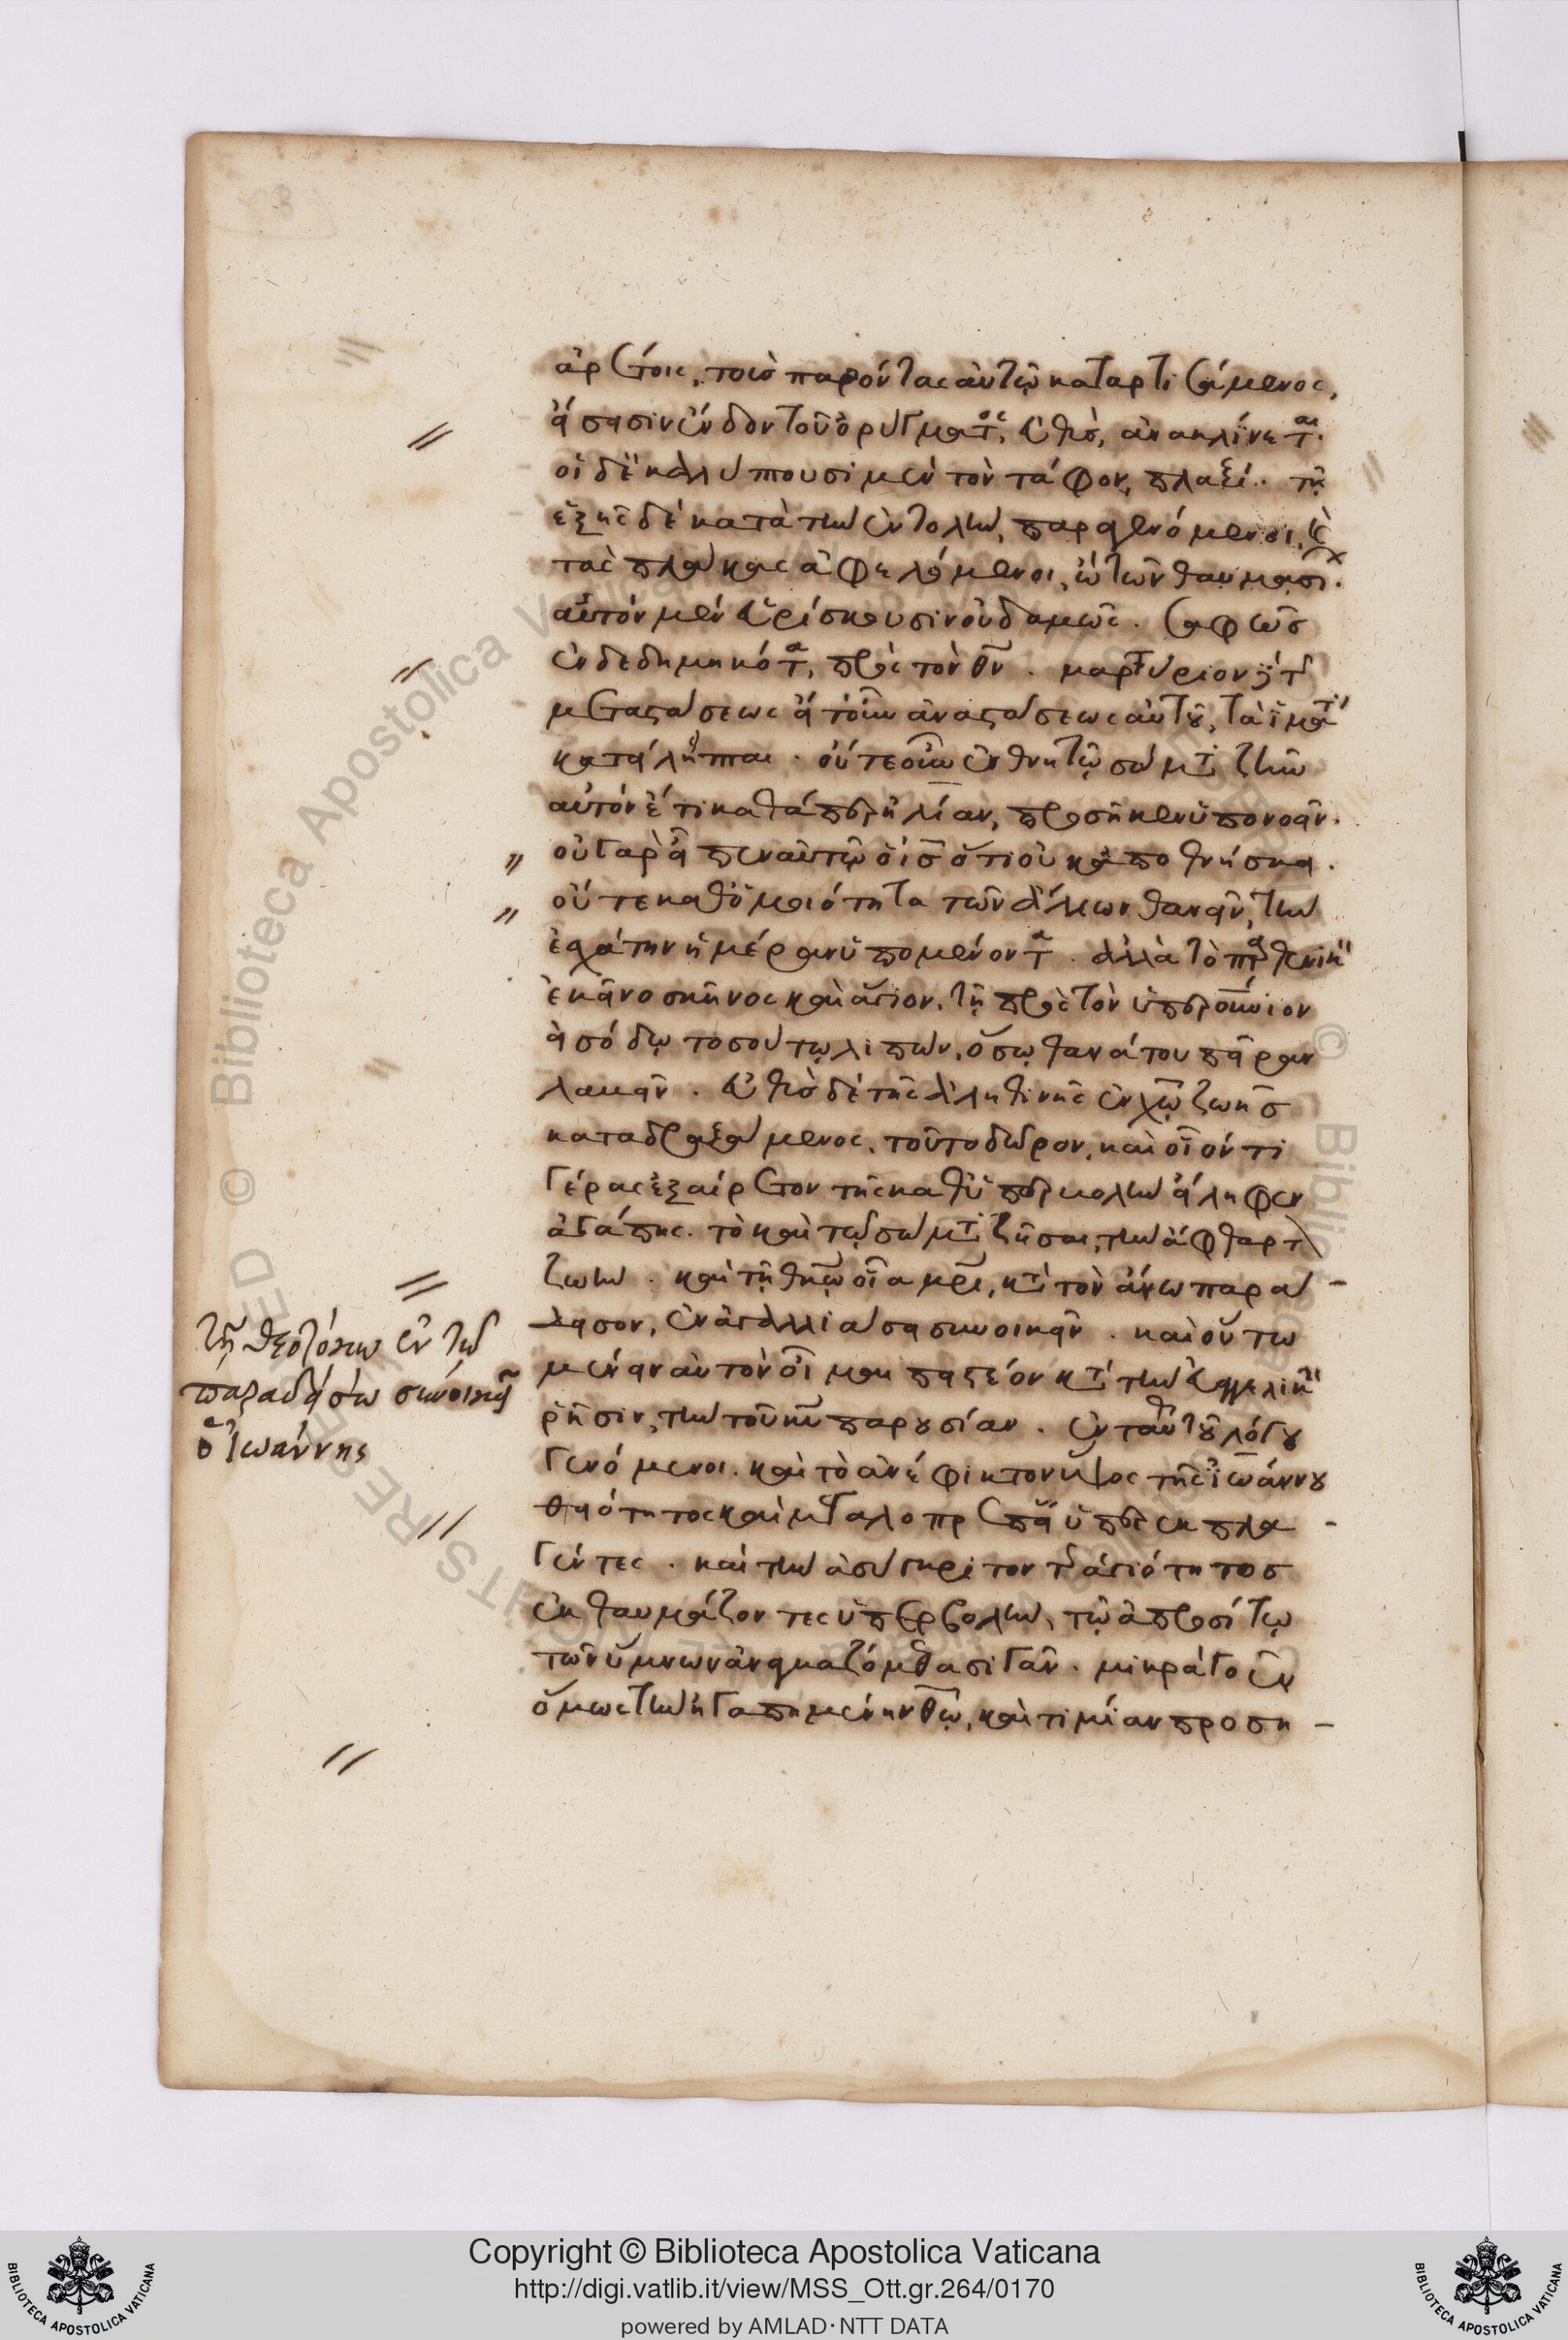 ἀρετοῖς, τοὺς παρόντας αὐτῷ καταρτισάμενος,
εἴσεισιν ἔνδον τοῦ ὀρύγματος, εὐθὺς, ἀνακλίνεται.
οἱ δὲ καλύπτουσι μὲν τὸν τάφον, πλαξί. τῇ
ἑξῆς δὲ κατὰ τὴν ἐντολὴν, παραγενόμενοι, καὶ
τὰς πλάκας ἀφελόμενοι, ὢ τῶν θαυμασίων
αὐτὸν μὲν εὑρίσκουσιν οὐδαμῶς. σαφῶς
ἐνδεδημηκότα, πρὸς τὸν θν. μαρτύριον
μεταστάσεως εἴτουν ἀναστάσεως αὐτοῦ, τὰ ἱμάτια
καταλέλειπται. οὔτε οὖν ἐν θνητῷ σώματι ζῆν
αὐτὸν ἔτι καθάπερ ἠλίαν, προσῆκεν ὑπονοεῖν.
οὐ γὰρ εἶπεν αὐτῷ ὁ ις ὅτι οὐκ ἀποθνήσκει.
οὔτε καθ' ὁμοιότητα τῶν ἄλλων θανεῖν, τὴν
ἐσχάτην ἡμέραν ὑπομένοντα. ἀλλὰ τὸ παρθενικὸν
ἐκεῖνο σκῆνος καὶ ἅγιον, τῇ πρὸς τὸν ὑπερουράνιον
εἰσόδῳ τοσούτῳ λιπὼν, ὅσῳ θανάτου πεῖραν
λαβεῖν. εὐθὺς δὲ τῆς ἀληθινῆς ἐν χῳ ζωῆς
καταδραξάμενος, τοῦτο δῶρον, καὶ οἷόν τι
γέρας ἐξαίρετον τῆς καθ' ὑπερβολὴν εἴληφεν
ἀγάπης. τὸ καὶ τῷ σώματι ζῆσαι, τὴν ἄφθαρτον
ζωήν. καὶ τῇ θκῳ οἷα μρι, κατὰ τὸν ἄνω παρά-
δεισον, ἐν ἀγαλλιάσει συνοικεῖν. καὶ οὕτω
μένειν αὐτὸν οἶμαι πιστέον κατὰ τὴν εὐαγγελικὴν
ῥῆσιν, τὴν τοῦ κυ παρουσίαν. ἐνταῦθα τοῦ λόγου
γενόμενοι. καὶ τὸ ἀνέφικτον ὕψος τῆς ἰωάννου
θειότητος καὶ μεγαλοπρεπείας ὑπερεκπλα-
γέντες. καὶ τὴν ἀσύγκριτον τῆς ἁγιότητος
ἐκθαυμάζοντες ὑπερβολὴν, τῷ ἀπροσίτῳ
τῶν ὕμνων ἀναγκαζόμεθα σιγᾶν. μικρὰ γοῦν
ὅμως τὴν ἠγαπημένην θῳ, καὶ τιμίαν προση-
τῇ θεοτόκω ἐν τῷ
παραδείσω συνοικεῖ
ὁ Ἰωάννης
Copyright © Biblioteca Apostolica Vaticana
http://digi.vatlib.it/view/MSS_Ott.gr.264/0170
powered by AMLAD·NTT DATA
BIBLIOTECA APOSTOLICA VATICANA
BIBLIOTECA APOSTOLICA VATICANA